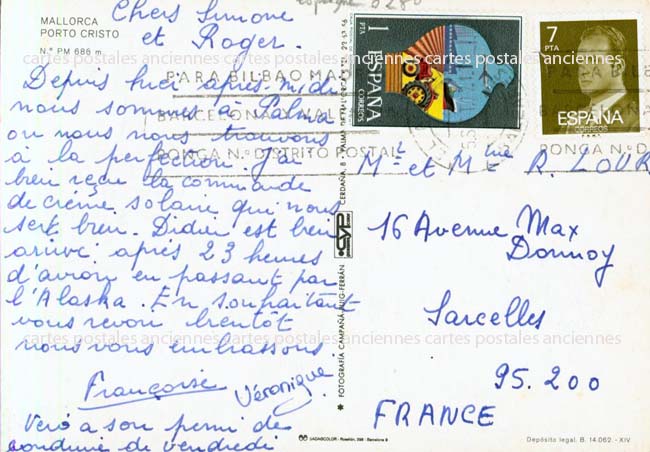 Chers Simone
et Roger.
MALLORCA
PORTO CRISTO
N.º PM 686 m.
Depuis hier après-midi
nous sommes à Palma
ou nous nous trouvons
à la perfection. J'ai
bien reçu la commande
de crème solaire qui nous
sert bien. Didier est bien
arrivé après 23 heures
d'avion en passant par
l'Alaska. En souhaitant
vous revoir bientôt
nous vous embrassons.
Françoise Véronique
Véro a son permi de
conduire de vendredi
FOTOGRAFÍA CAMPAÑA PUIG-FERRÁN
CERDAÑA, 8
1
PTA
ESPAÑA
CORREOS
7
PTA
ESPAÑA
CORREOS
PARA BILBAO
BARCELONA
PONGA N.º DISTRITO POSTAL
PONGA N.º D
Mr et Mme R. LOUR
16 Avenue Max
Dormoy
Sarcelles
95.200
FRANCE
Depósito legal. B. 14.062. - XIV
cartes postales anciennes cartes postales anciennes cartes postales anciennes
cartes postales anciennes cartes postales anciennes cartes postales anciennes